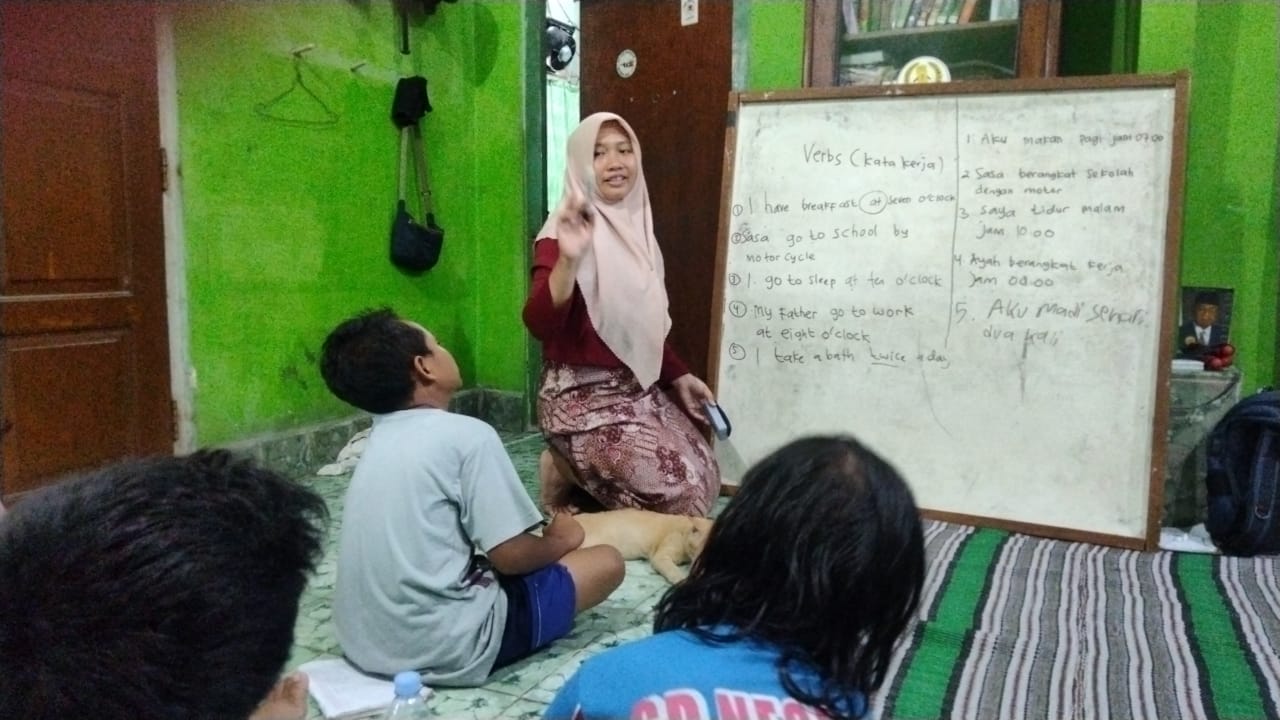 Verbs (kata kerja)
① I have breakfast at seven o'clock
② Sasa go to school by
motor cycle
③ I go to sleep at ten o'clock
④ My Father go to work
at eight o'clock
⑤ I take a bath twice a day
1. Aku makan pagi jam 07.00
2 Sasa berangkat sekolah
dengan motor
3. Saya tidur malam
jam 10.00
4. Ayah berangkat kerja
jam 08.00
5. Aku madi sehari
dua kali
SD NEG